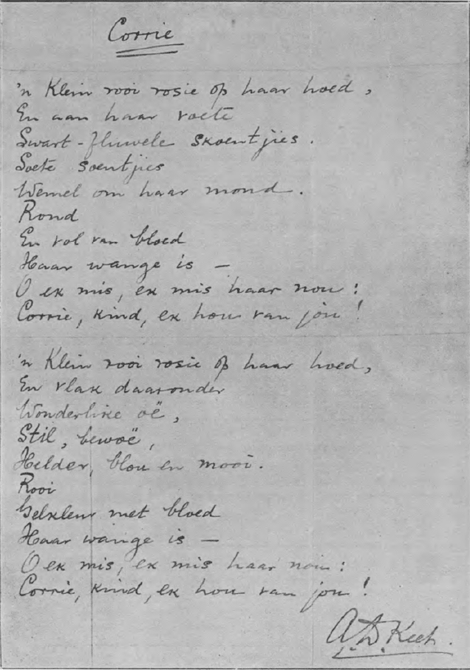 Corrie
'n Klein rooi rosie op haar hoed,
En aan haar voete
Swart-fluwele skoentjies.
Soete soentjies
Wemel om haar mond.
Rond
En vol van bloed
Haar wange is —
O ek mis, ek mis haar nou:
Corrie, kind, ek hou van jou!
'n Klein rooi rosie op haar hoed,
En vlak daaronder
Wonderlike oë,
Stil, bewoë,
Helder, blou en mooi.
Rooi
Gekleur met bloed
Haar wange is —
O ek mis, ek mis haar nou:
Corrie, kind, ek hou van jou!
A.D. Keet.